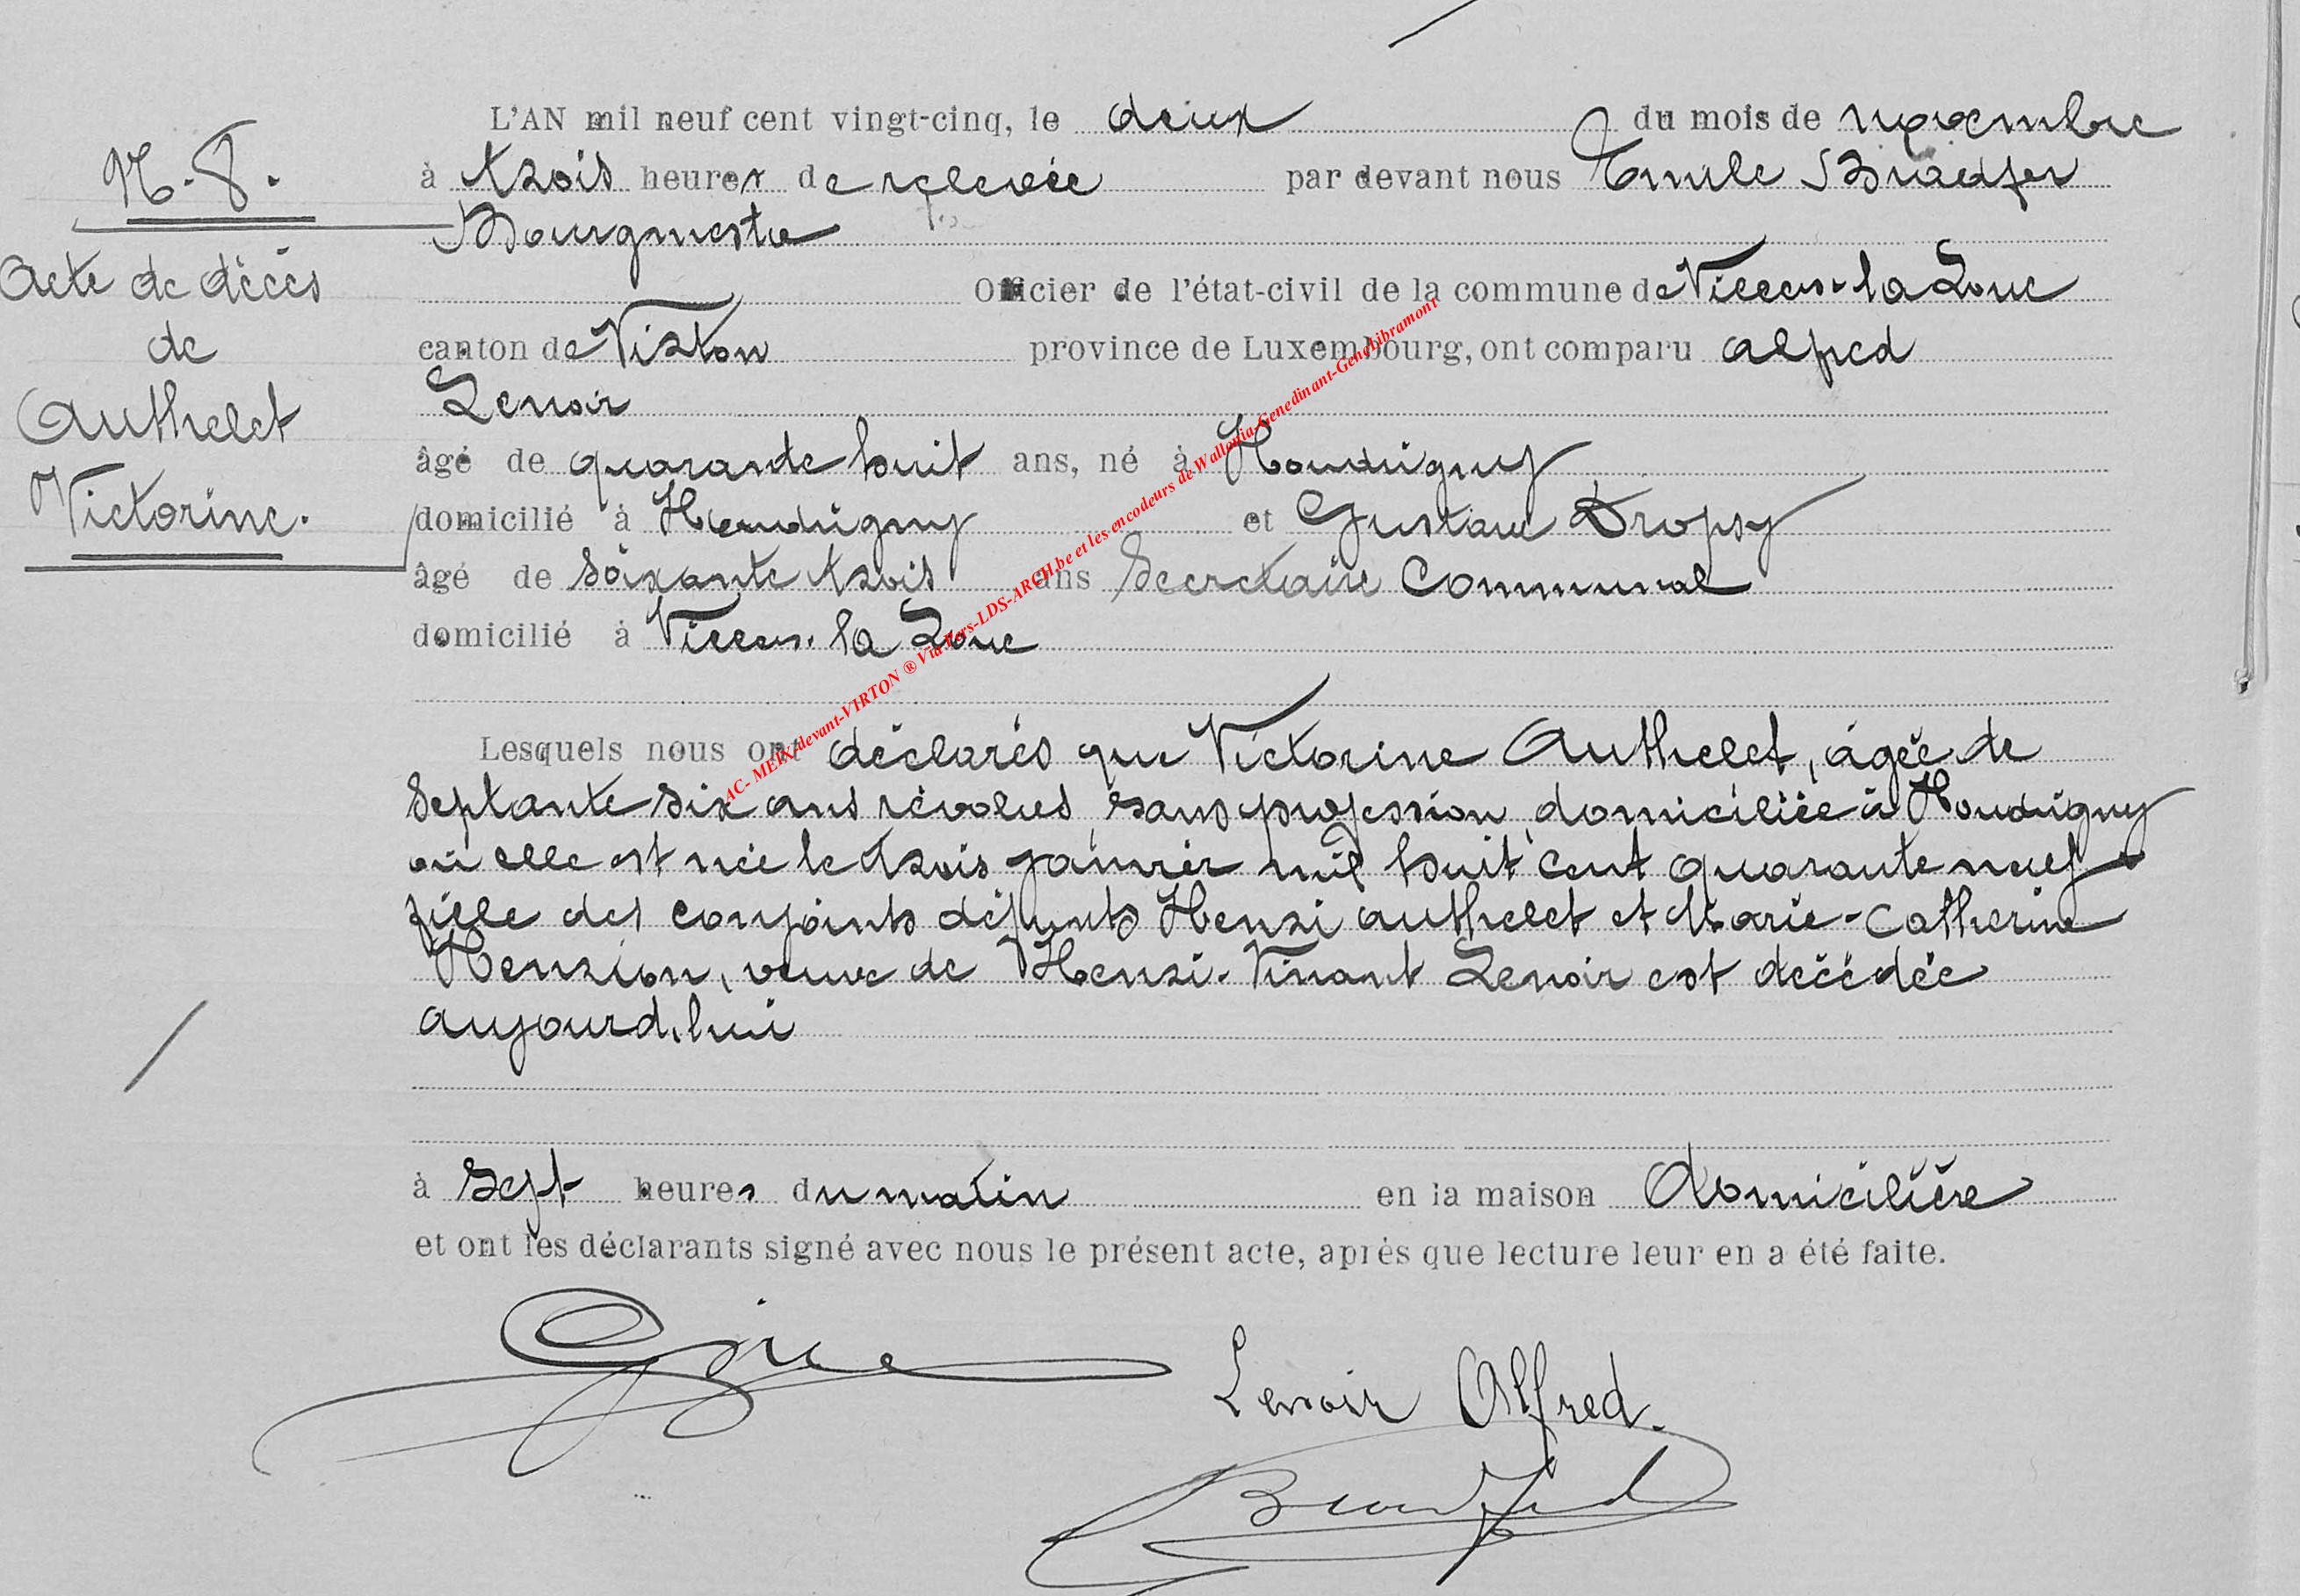 N. 8.
Acte de décès
de
Authelet
Victorine.
L'AN mil neuf cent vingt-cinq, le deux du mois de novembre
à trois heures de relevée par devant nous Emile Bradfer
Bourgmestre
Officier de l'état-civil de la commune de Villers-la-Loue
canton de Virton province de Luxembourg, ont comparu Alfred
Lenoir
âgé de quarante huit ans, né à Houdrigny
domicilié à Houdrigny et Gustave Dropsy
âgé de soixante trois ans Secrétaire Communal
domicilié à Villers-la-Loue
Lesquels nous ont déclarés que Victorine Authelet, âgée de
septante six ans révolus, sans profession, domiciliée à Houdrigny
où elle est née le trois janvier mil huit cent quarante neuf
fille des conjoints défunts Henri Authelet et Marie-Catherine
Henrion, veuve de Henri-Vinant Lenoir est décédée
aujourd'hui
à sept heures du matin en la maison domicilière
et ont les déclarants signé avec nous le présent acte, après que lecture leur en a été faite.
Lenoir Alfred.
Bradfer
AC- MEIX-devant-VIRTON ® Via Fers-LDS-ARCH.be et les encodeurs de Wallonia-Genedinant-Genealibramont